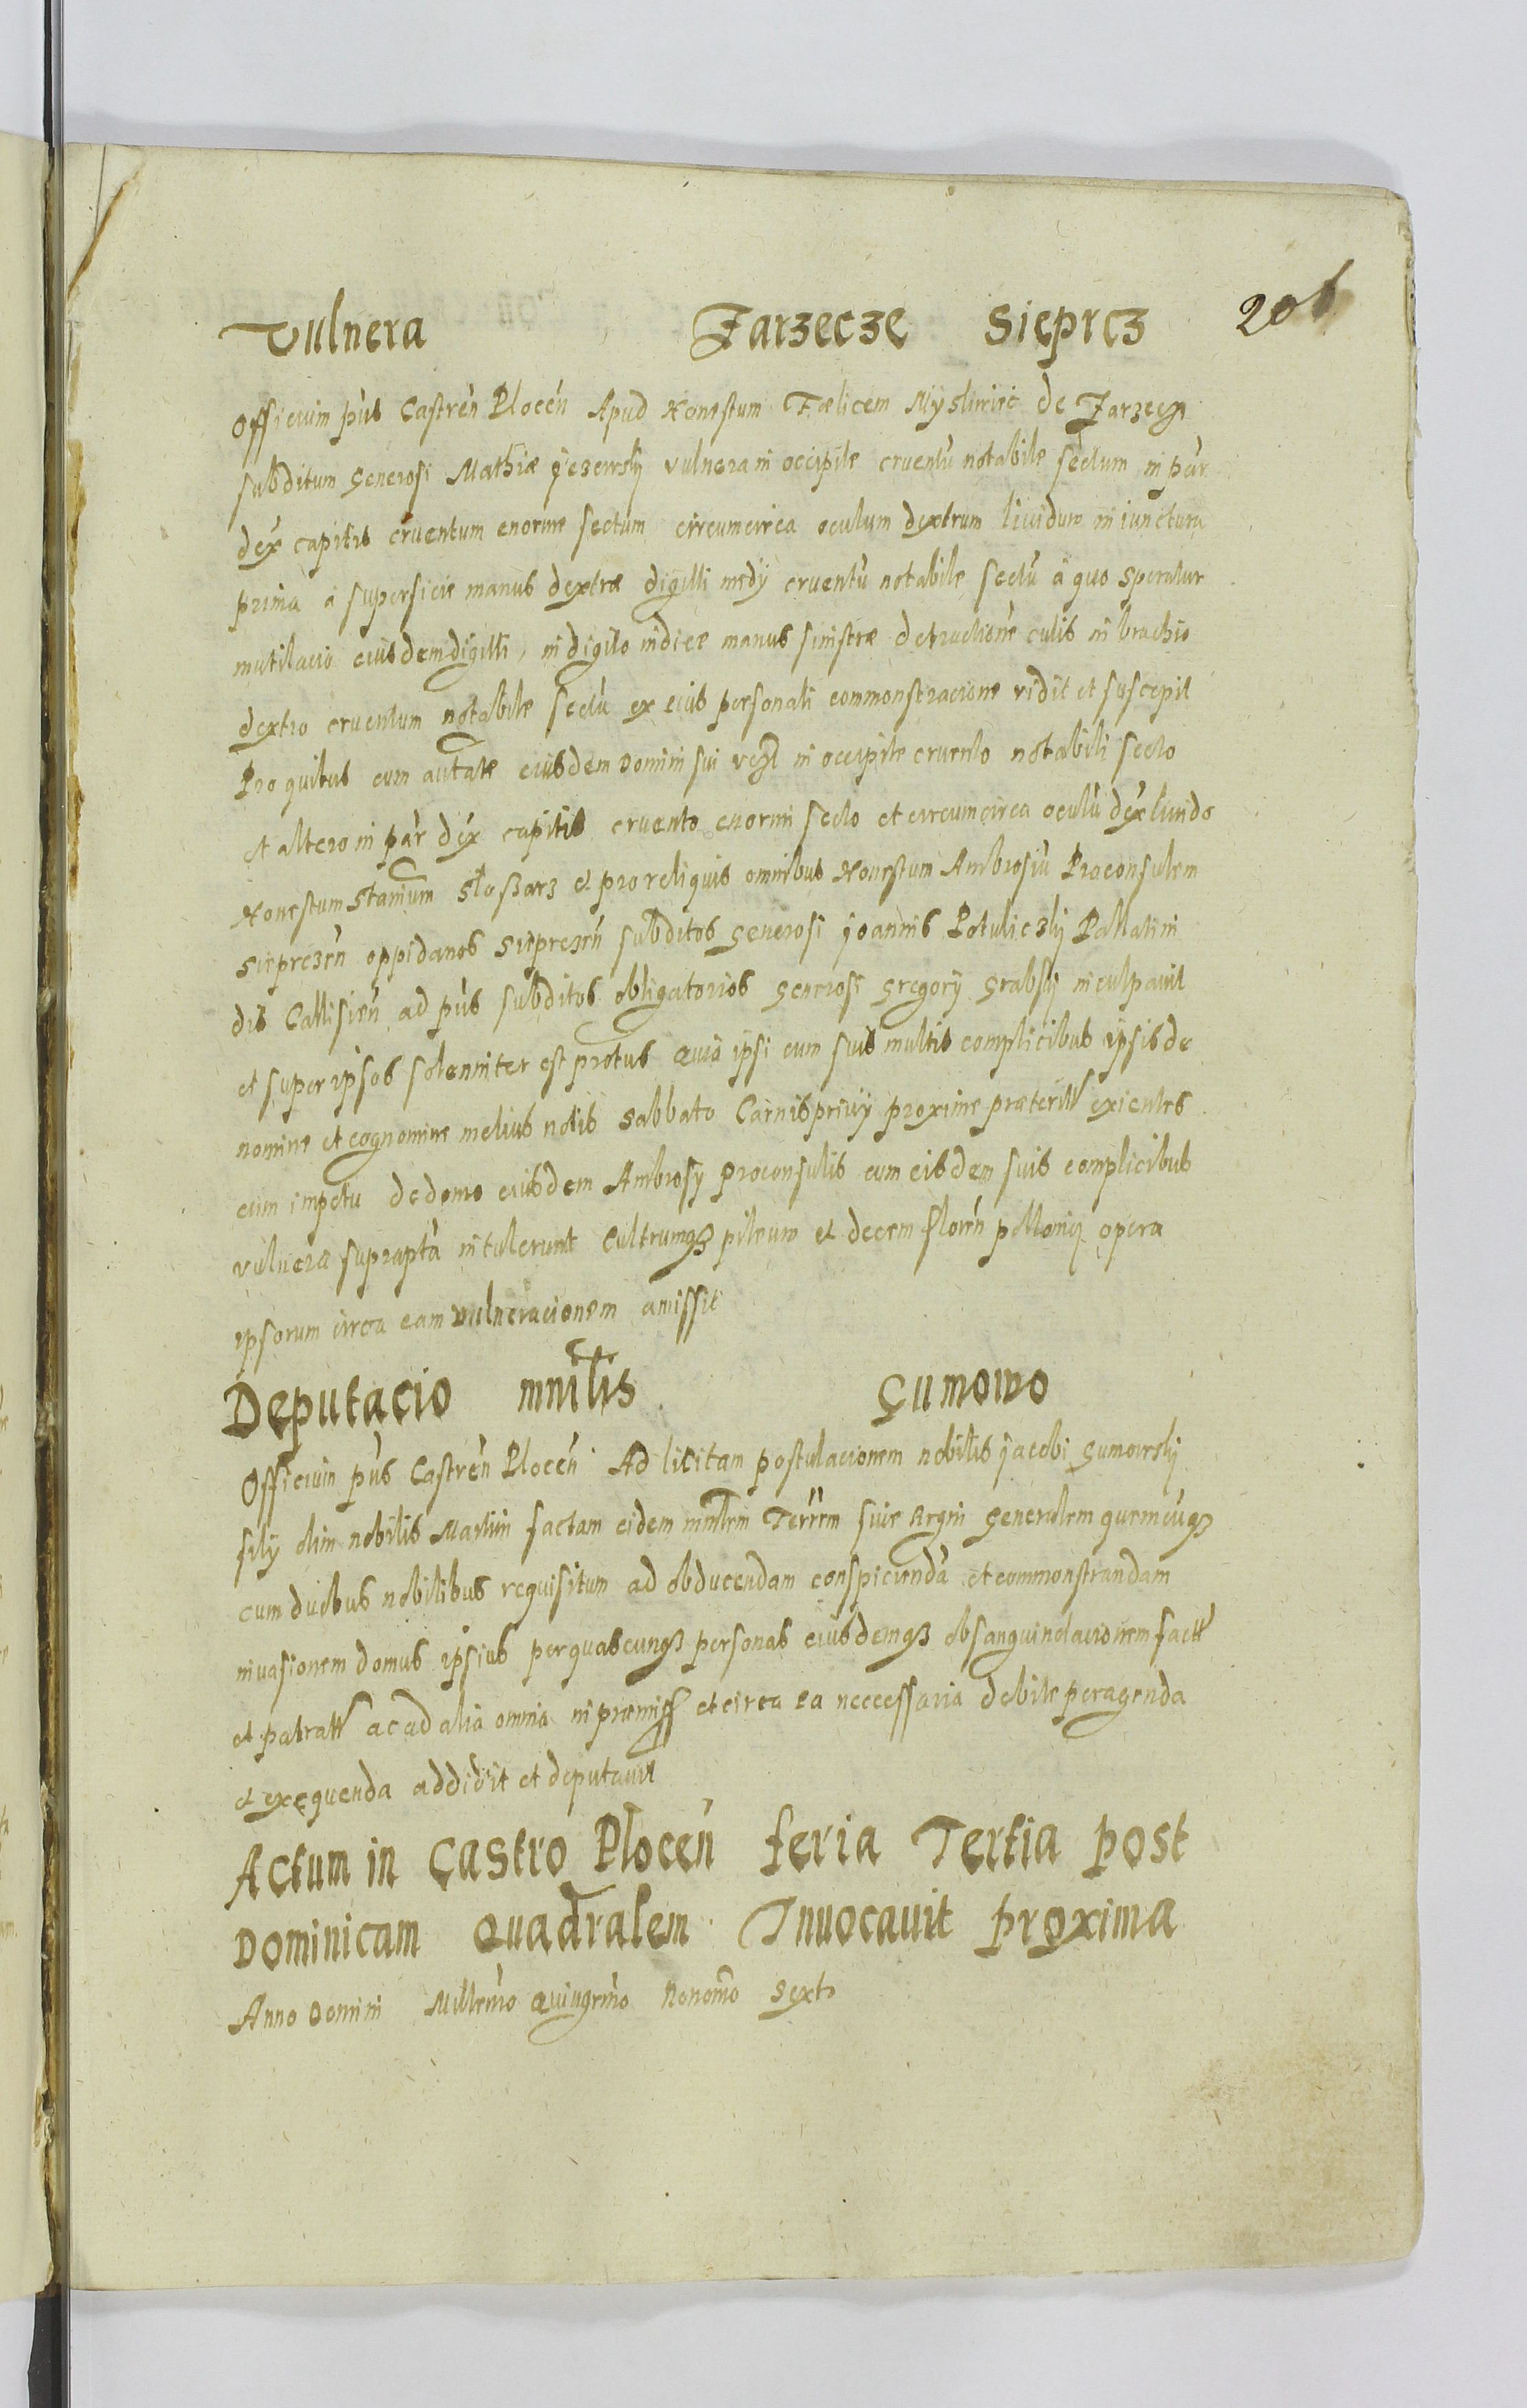 Vulnera Jarzecze Sieprcz 206
Officium pñs Castreñ Ploceñ Apud Honestum Fælicem Mysliwiec de Jarzecze
subditum Generosi Mathiæ Jezewsky vulnera in occipite cruentũ notabile sectum in par
dex capitis cruentum enorme sectum circumcirca oculum dextrum lividum in iunctura
prima a superficie manus dextræ digitti medy cruentũ notabile sectũ a quo speratur
mutilacio eiusdem digitti, in digito indice manus sinistræ detractione cutis in brachio
dextro cruentum notabile sectũ ex eius personali commonstracione vidit et suscepit
Pro quibus cum autate eiusdem Domini sui in occipite cruento notabili secto
et altero in par dex capitis cruento enormi secto et circumcirca oculũ dex livido
Honestum Stanium Sloßarz et pro reliquis omnibus Honestum Ambrosiũ Proconsulem
Sieprczeñ oppidanos Sieprczeñ subditos Generosi Joannis Potuliczky Pallatini
dis Callisieñ ad pñs subditos obligatorios Generosi Gregory Grabsky inculpavit
et super ipsos solenniter est protus Quia ipsi cum suis multis complicibus ipsis de
nomine et cognomine melius notis Sabbato Carnisprivy proxime præterito exientes
cum impetu de domo eiusdem Ambrosy Proconsulis cum eisdem suis complicibus
vulnera suprapta intulerunt Cultrumqz pileum et decem floreñ pollonic opera
ipsorum circa eam vulneracionem amissit
Deputacio mnilis Gumowo
Officium pñs Castreñ Ploceñ Ad licitam postulacionem nobilis Jacobi Gumowsky
fily olim nobilis Martini factam eidem mnlem Terrem sive Regni Generalem quemcũqz
cum duobus nobilibus requisitum ad obducendam conspiciendã et commonstrandam
invasionem domus ipsius per quascunqz personas eiusdemqz obsanguinolacionem fact
et patrat ac ad alia omnia in præmiss et circa ea neccessaria debite peragenda
et exequenda addidit et deputavit
Actum in Castro Ploceñ feria Tertia post
Dominicam Quadralem Invocavit proxima
Anno Domini Millemo Quingemo Nonomo Sexto